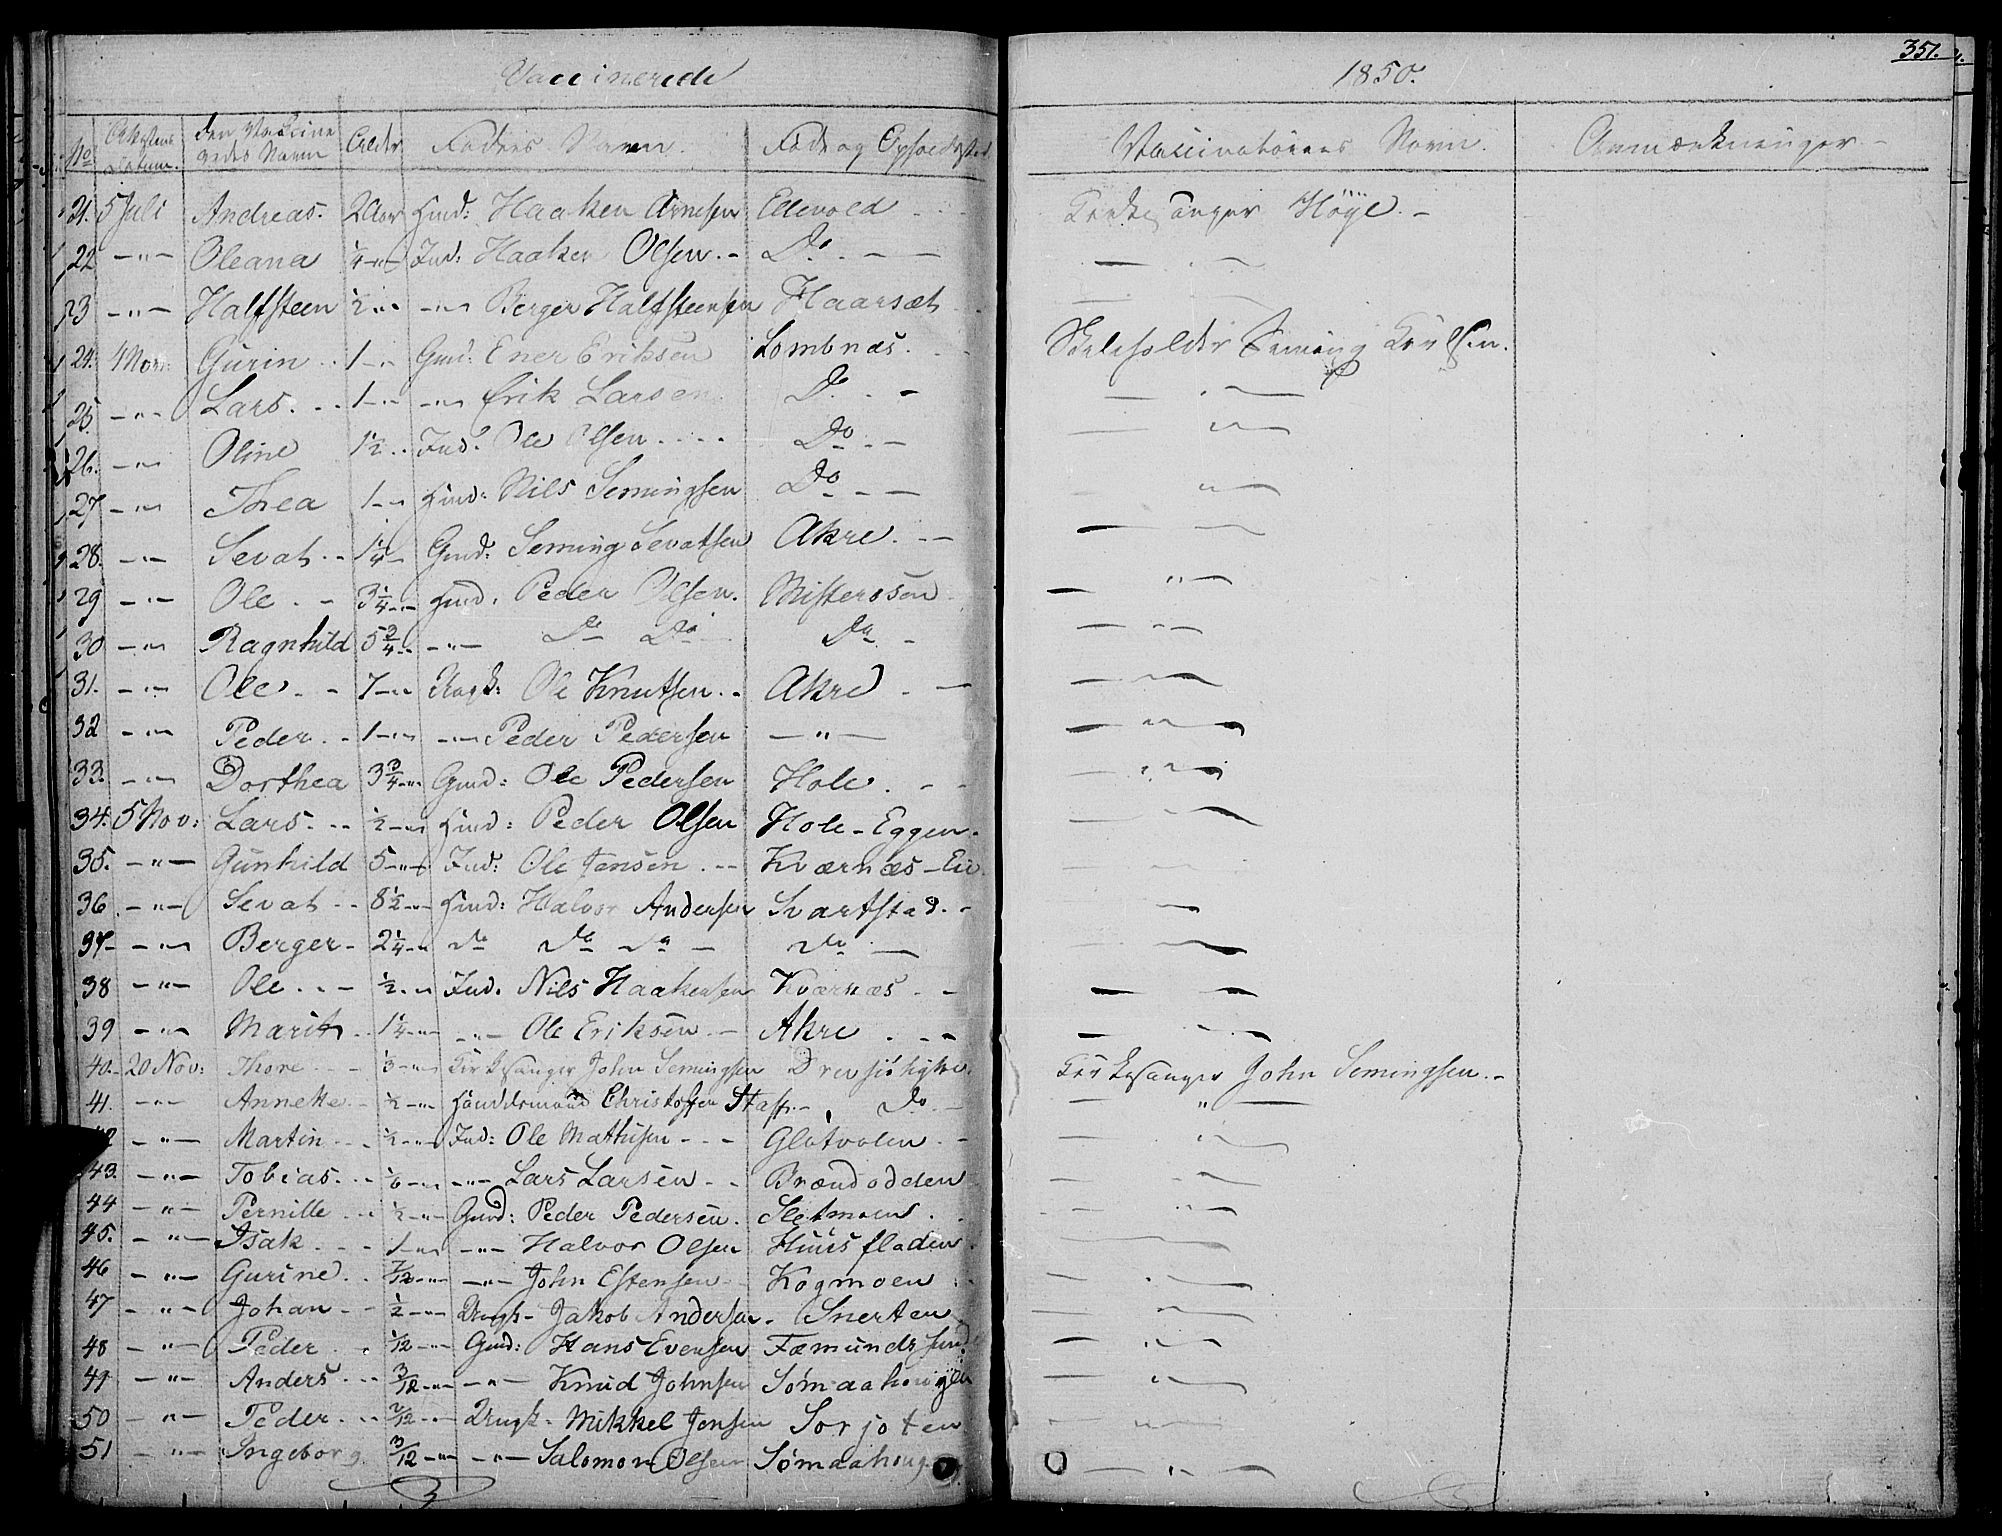 Vaccinerede
1850.
351.
No Attestens Datum. den Vaccineredes Navn Alder Faders Navn. Føde og Opholdssted Vaccinateurens Navn. Anmærkninger.
21. 5 Juli Andreas. 2 Aar Huusd: Haaken Arnesen Ellevold Kirkesanger Høye.
22 -"- Oleana 1/4 -"- Ind: Haaken Olsen. Do. -"-
23 -"- Halfsteen 1/2 -"- -"- Berger Halfsteensen Haarsæt -"-
24. 4 Nov: Gurin 1 -"- Gmd: Ener Eriksen Lombnæs. Skoleholder Seming
25. -"- Lars. 1 -"- -"- Erik Larsen Do. -"-
26. -"- Oline 1 1/2 Ind: Ole Olsen Do -"-
27 -"- Thea 1 -"- Huusd: Nils Semingsen Do -"-
28. -"- Sevat 1 1/4 - Gmd: Seming Sevatsen Akre. -"-
29 -"- Ole. 3 1/4 -"- Huusd. Peder Olsen. Misterosen -"-
30 -"- Ragnhild 5 3/4 -"- -"- Do Do Do -"-
31. -"- Ole 7 -"- Ungk: Ole Knutsen. Akre -"-
32 -"- Peder 1 -"- -"- Peder Pedersen -"- -"-
33. -"- Dorthea 3 3/4 -"- Gmd: Ole Pedersen Hole. -"-
34. 5 Nov: Lars. 1/2 -"- Huusd: Peder Olsen Hole-Eggen. -"-
35. -"- Gunhild 5 -"- Ind: Ole Jensen. Kværnæs-Eie. -"-
36. -"- Sevat 8 1/2 -"- Huusd: Halvor Andersen Svartstad. -"-
37 -"- Berger 2 1/4 -"- do do do do -"-
38 -"- Ole 1/2 -"- Ind. Nils Haakensen Kværnæs -"-
39 -"- Marit 1 1/4 -"- -"- Ole Eriksen Akre -"-
40. 20 Nov: Thore 3 -"- Kirkesanger John Semingsen Drevsjøhytte. Kirkesanger John Semingsen.
41. -"- Annette 1/2 -"- Christoffer Staff. Do. -"-
42 -"- Martin 1/2 -"- Ind: Ole Mathisen Gløtvolen -"-
43. -"- Tobias. 1/6 -"- -"- Lars Larsen Brændodden -"-
44 -"- Pernille 1/2 -"- Gmd: Peder Pedersen. Sletmoen. -"-
45. -"- Isak 1 -"- -"- Halvor Olsen Huusfladen. -"-
46 -"- Gurine. 7/12 -"- -"- John Estensen Kogmoen -"-
47 -"- Johan 1/2 -"- Ungk. Jakob Andersen. Snerten -"-
48 -"- Peder 1/12 -"- Gmd: Hans Evensen Fæmundssund -"-
49 -"- Anders 3/12 -"- -"- Knud Johnsen Sømaahougen -"-
50 -"- Peder 2/12 -"- Ungk. Mikkel Jensen Sorjoten -"-
51 -"- Ingeborg. 3/12 -"- -"- Salomon Olsen Sømaahoug -"-